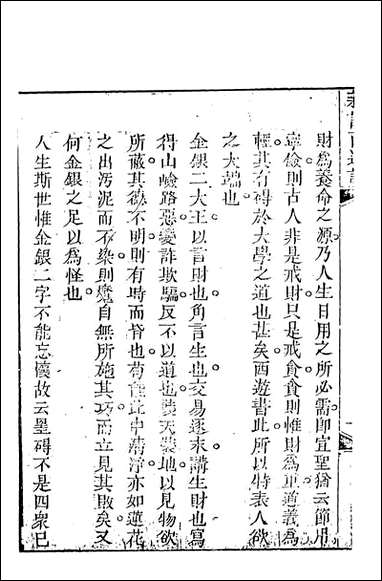 財爲養命之源乃人生日用之所必需卽宣聖猶云節用
寧儉則古人非是戒財只是戒貪貪則惟財爲重道義爲
輕其有碍於大學之道也甚矣西遊書此所以特表人欲
之大端也
金銀二大王以言財也角言生也交易逐末講生財也寫
得山嶮路惡變詐欺騙反不以道也裝天裝地以見物欲
所蔽其德不明則有時而昏也苟能此中清淨亦如蓮花
之出污泥而不染則魔自無所施其巧而立見其敗矣又
何金銀之足以爲怪也
人生斯世惟金銀二字不能忘懷故云罣碍不是四衆已